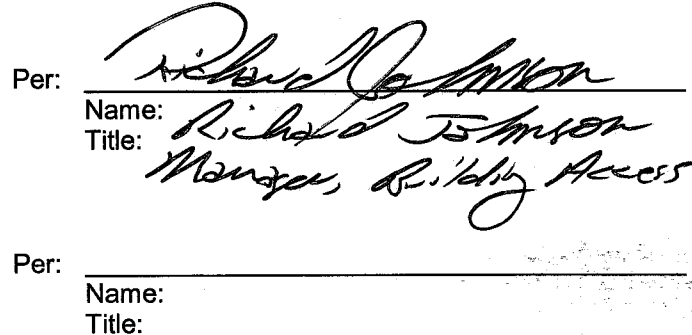 Per: Richard Johnson
Name:
Title: Richard Johnson
Manager, Building Access
Per:
Name:
Title: